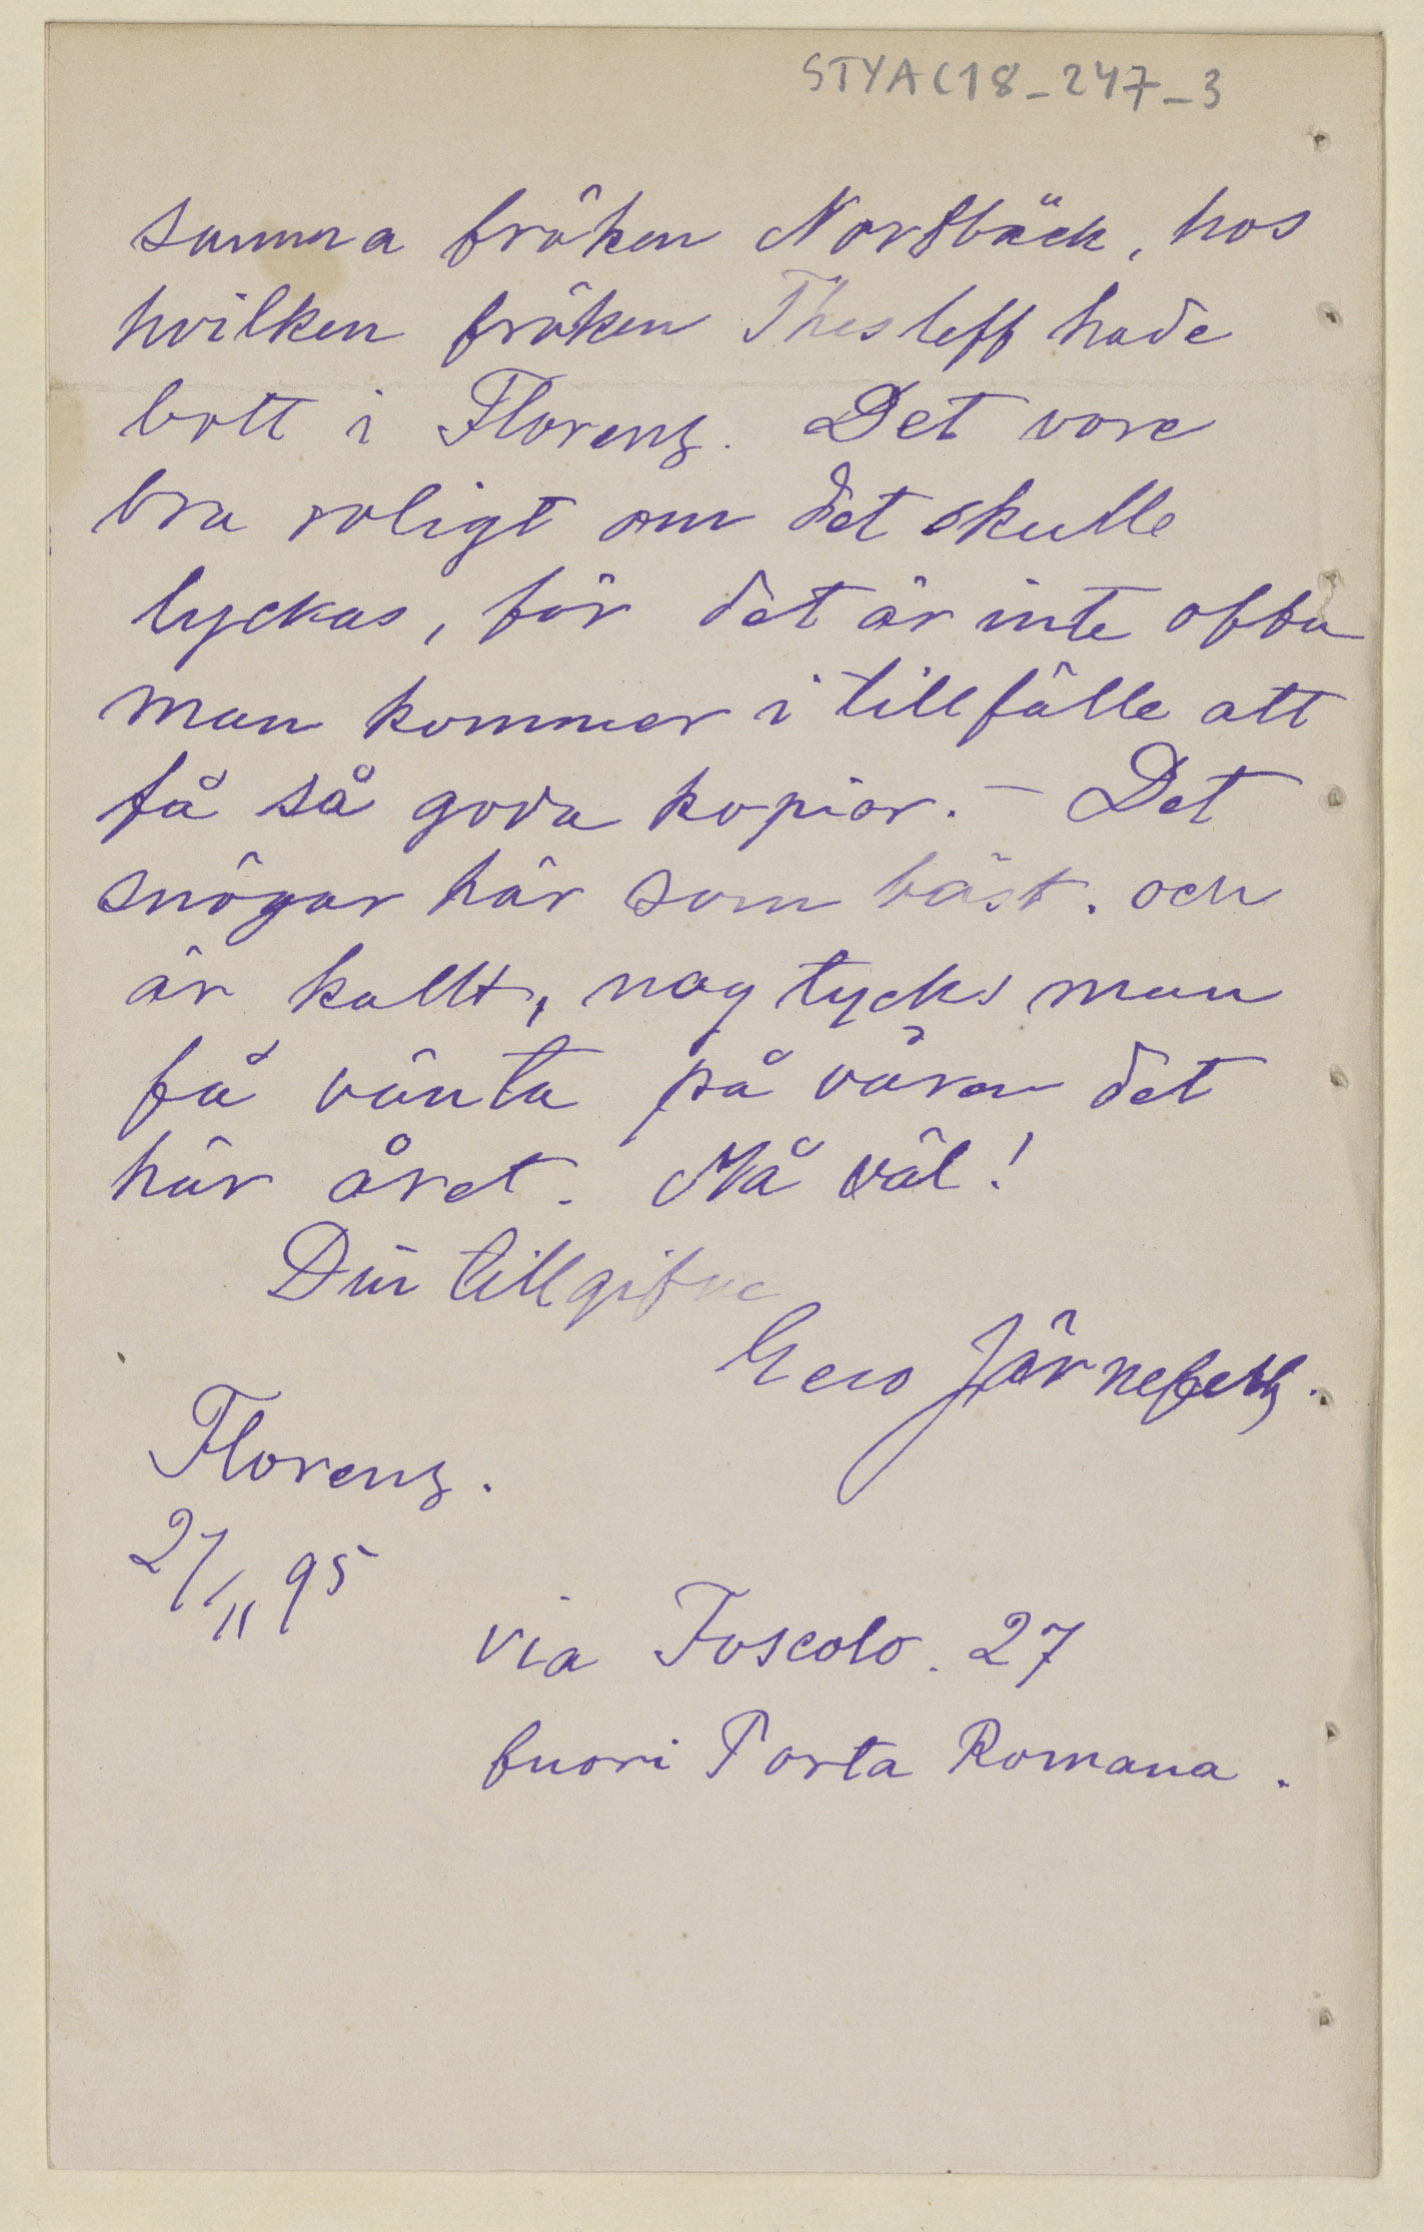 STYAC18_247_3
samma fröken Nordbäck, hos
hvilken fröken Thesleff hade
bott i Florenz. Det vore
bra roligt om det skulle
lyckas, för det är inte ofta
man kommer i tillfälle att
få så goda kopior. – Det
snögar här som bäst. och
är kallt, nog tycks man
få vänta på våren det
här året. Må väl!
Din tillgifne
Eero Järnefelt.
Florenz.
27/II 95
via Foscolo. 27
fuori Porta Romana.